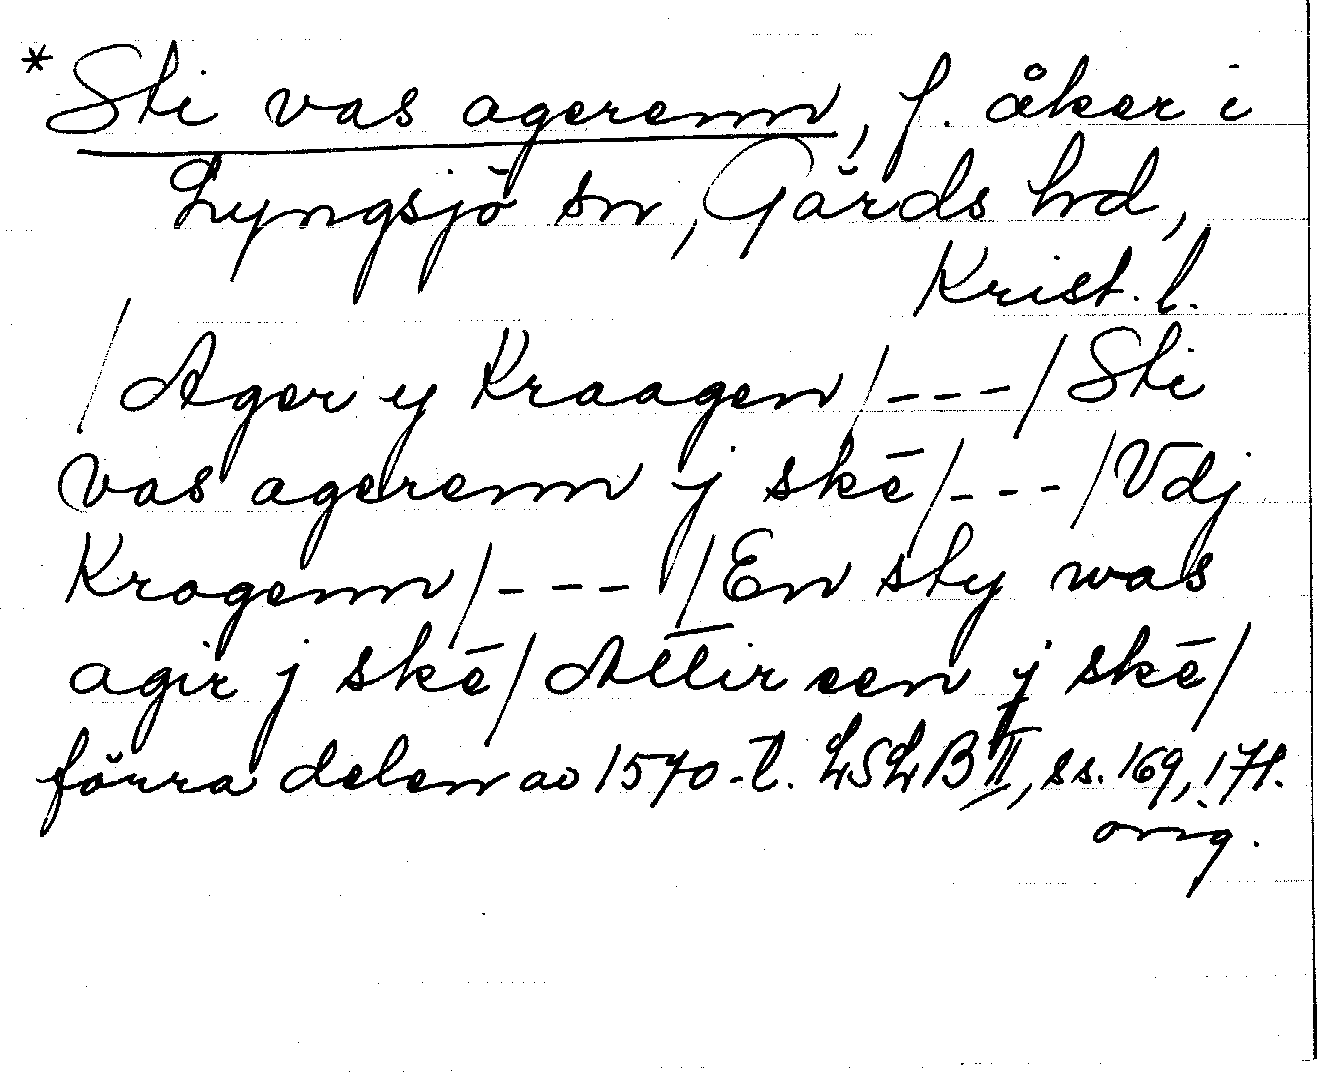 *Sti vas agerenn, f. åker i
Lyngsjö sn, Gärds hd,
Krist. l.
/Ager y Kraagen/---/Sti
vas agerenn j skē/---/Vdj
Kragenn/---/En sty was
agir j skē/Attir een j skē/
förra delen av 1570-t. LSLB II, ss. 169, 171.
orig.